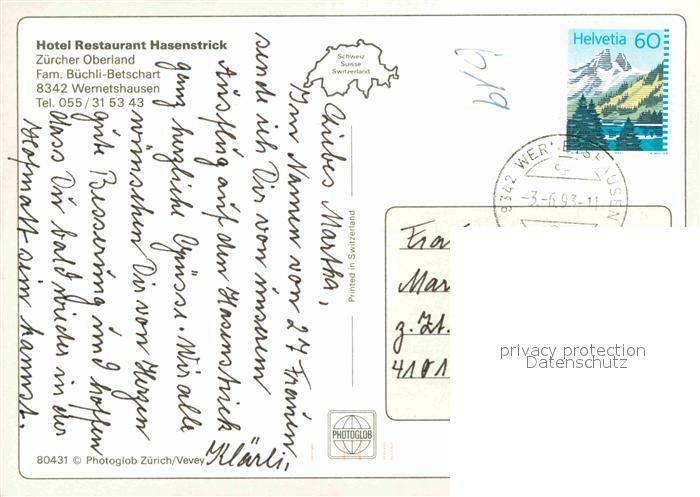 Hotel Restaurant Hasenstrick
Zürcher Oberland
Fam. Büchli-Betschart
8342 Wernetshausen
Tel. 055 / 31 53 43
Schweiz
Suisse
Switzerland
Helvetia 60
619
8342 WERNETSHAUSEN
-3.-6.93-11
Liebes Martha,
Im Namen von 27 Frauen
sende ich Dir von unserem
Ausflug auf den Hasenstrick
ganz herzliche Grüsse. Wir alle
wünschen Dir von Herzen
gute Besserung und hoffen
dass Du bald wieder in der
Hofmatt sein kannst.
Klärli,
Printed in Switzerland
Mar
z. Zt.
4101
privacy protection
Datenschutz
PHOTOGLOB
80431 © Photoglob Zürich/Vevey